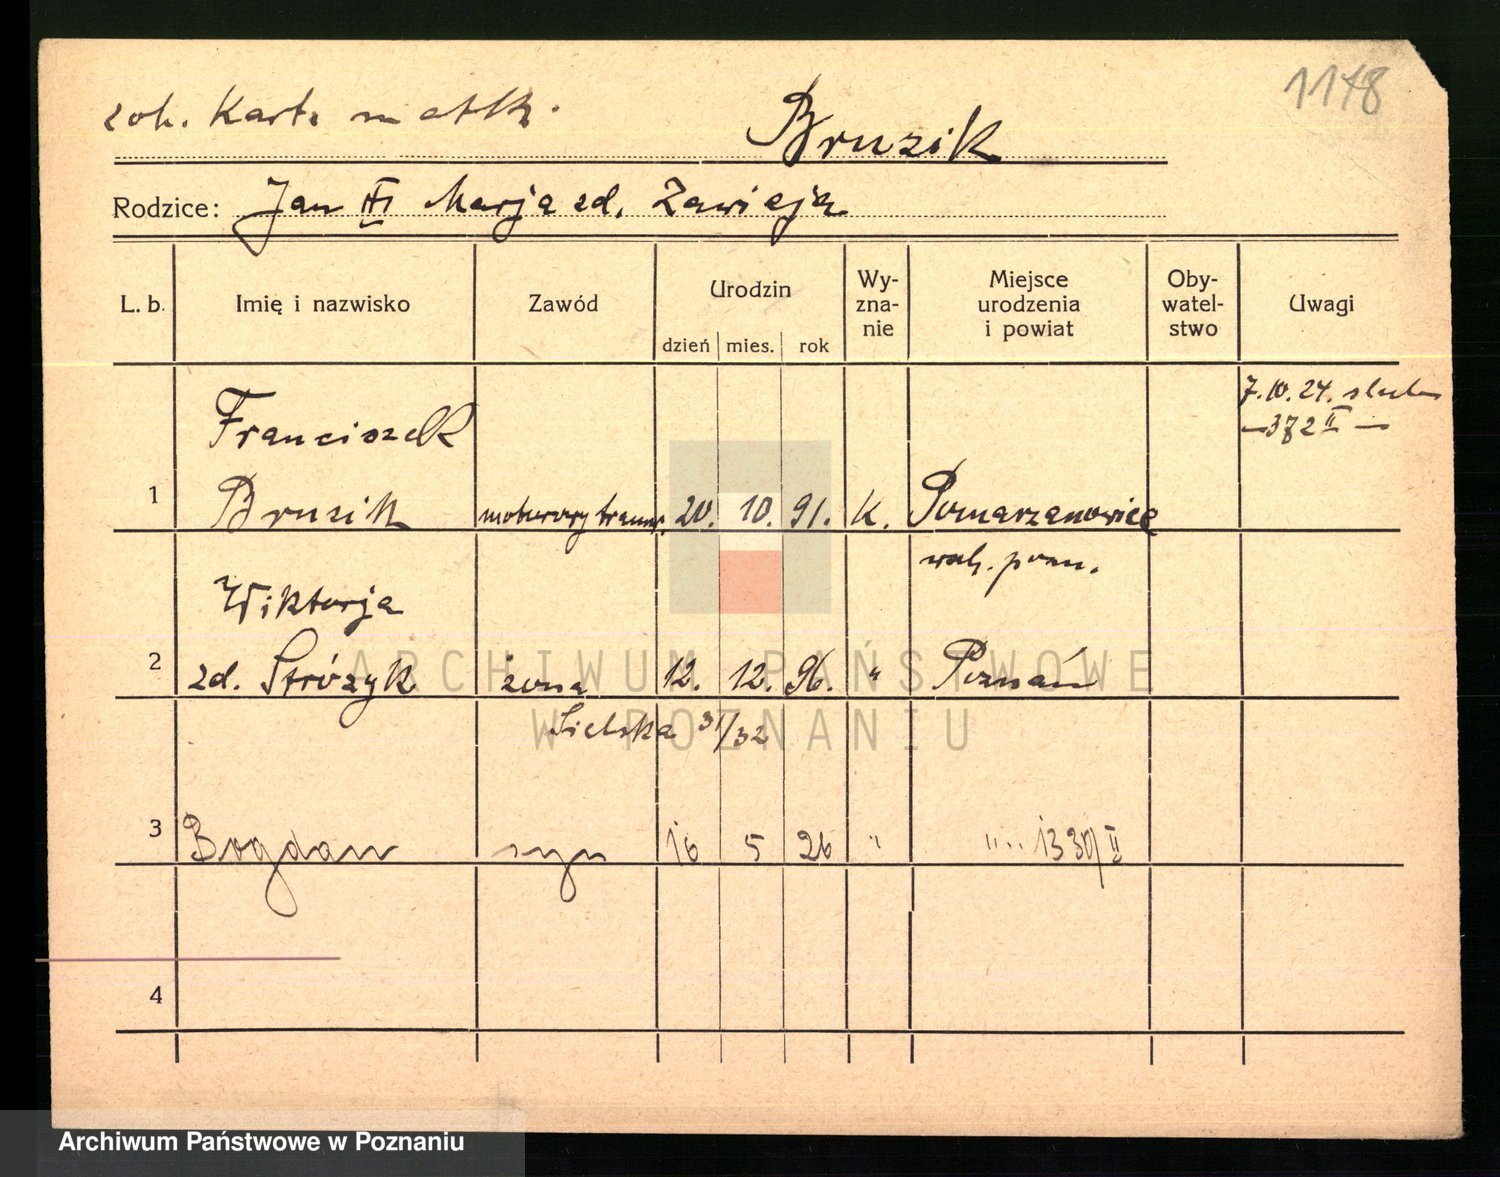 1148
zob. Karta matk.
Bruzik
Rodzice: Jan III Marja zd. Zawieja
L. b. Imię i nazwisko Zawód Urodzin dzień mies. rok Wy-zna-nie Miejsce urodzenia i powiat Oby-watel-stwo Uwagi
7. 10. 24. slub
Franciszek
— 372 II —
1 Bruzik motorowy tramw. 20. 10. 91. K. Pomarzanowice
pozn.
Wiktorja
2 zd. Stróżyk żona 12. 12. 96. " Poznań
Sielska 31/32
3 Bogdan syn 16 5 26 " " 1330/II
4
ARCHIWUM PAŃSTWOWE
W POZNANIU
Archiwum Państwowe w Poznaniu